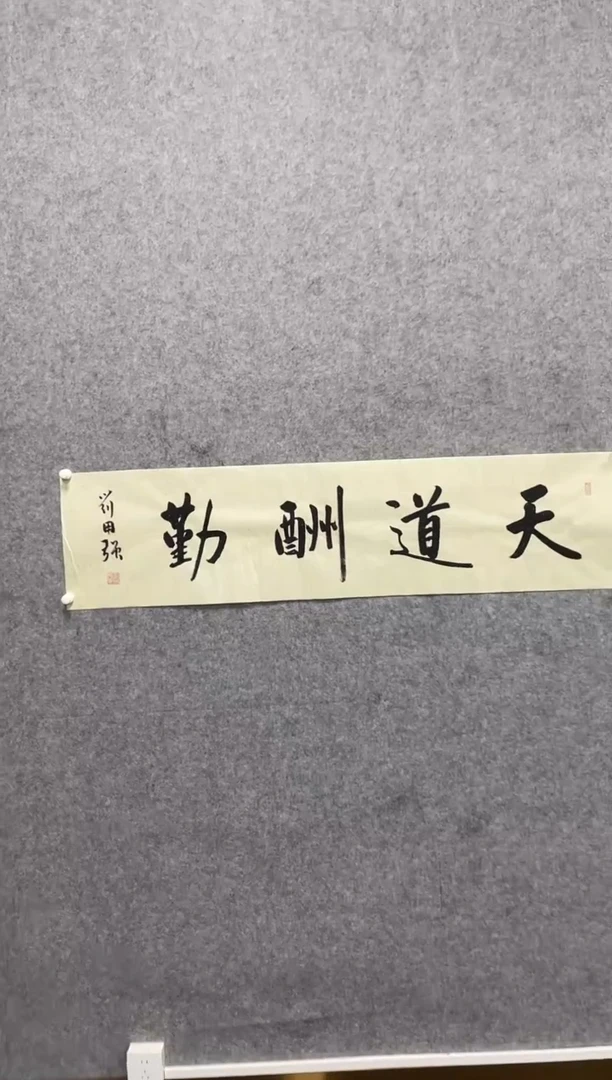 天道酬勤
刘田强